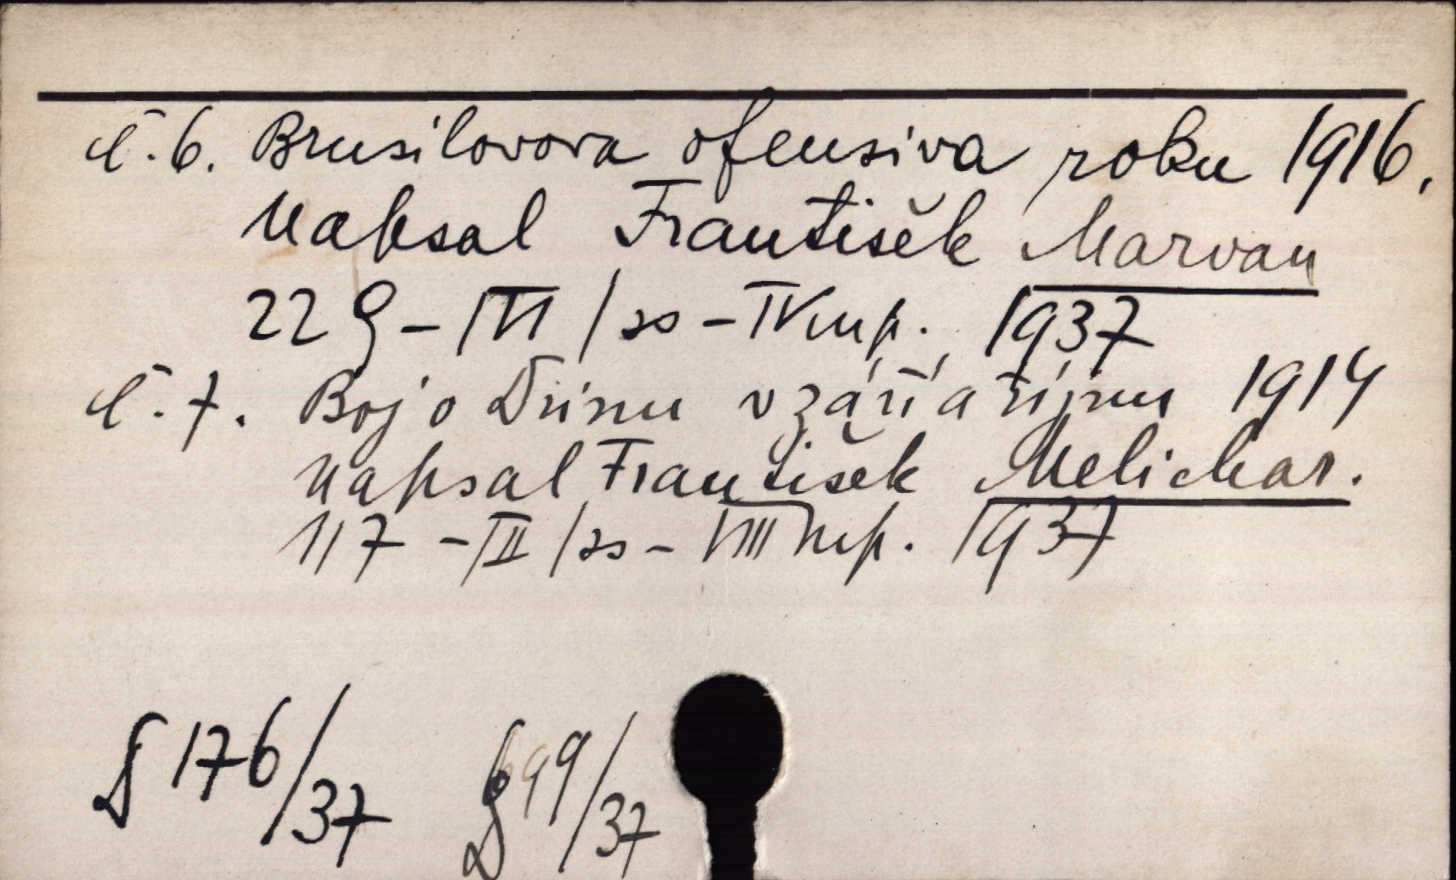 č.6. Brusilovova ofensiva roku 1916.
Napsal František Marvan
229 - III / 20 - IV mp. 1937
č.7. Boj o Drinu v září a říjnu 1914
Napsal František Melichar.
117 - II / 20 - VIII mp. 1937
176/37 99/37